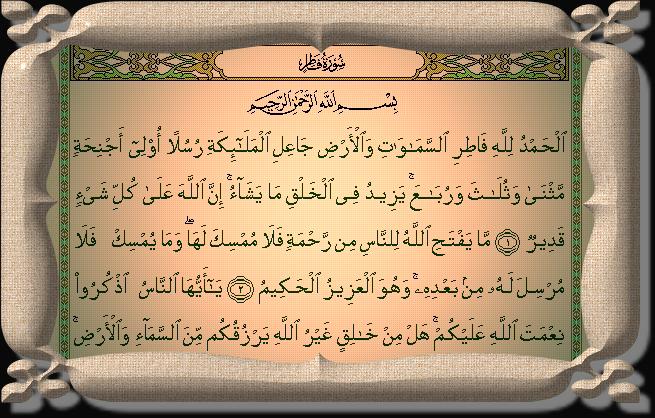 سُورَةُ فَاطِرٍ
بِسْمِ اللَّهِ الرَّحْمَٰنِ الرَّحِيمِ
الْحَمْدُ لِلَّهِ فَاطِرِ السَّمَٰوَٰتِ وَالْأَرْضِ جَاعِلِ الْمَلَٰٓئِكَةِ رُسُلًا أُو۟لِىٓ أَجْنِحَةٍ
مَّثْنَىٰ وَثُلَٰثَ وَرُبَٰعَ ۚ يَزِيدُ فِى الْخَلْقِ مَا يَشَآءُ ۚ إِنَّ اللَّهَ عَلَىٰ كُلِّ شَىْءٍ
قَدِيرٌ ﴿١﴾ مَّا يَفْتَحِ اللَّهُ لِلنَّاسِ مِن رَّحْمَةٍ فَلَا مُمْسِكَ لَهَا ۖ وَمَا يُمْسِكْ فَلَا
مُرْسِلَ لَهُۥ مِنۢ بَعْدِهِۦ ۚ وَهُوَ الْعَزِيزُ الْحَكِيمُ ﴿٢﴾ يَٰٓأَيُّهَا النَّاسُ اذْكُرُوا۟
نِعْمَتَ اللَّهِ عَلَيْكُمْ ۚ هَلْ مِنْ خَٰلِقٍ غَيْرُ اللَّهِ يَرْزُقُكُم مِّنَ السَّمَآءِ وَالْأَرْضِ ۚ